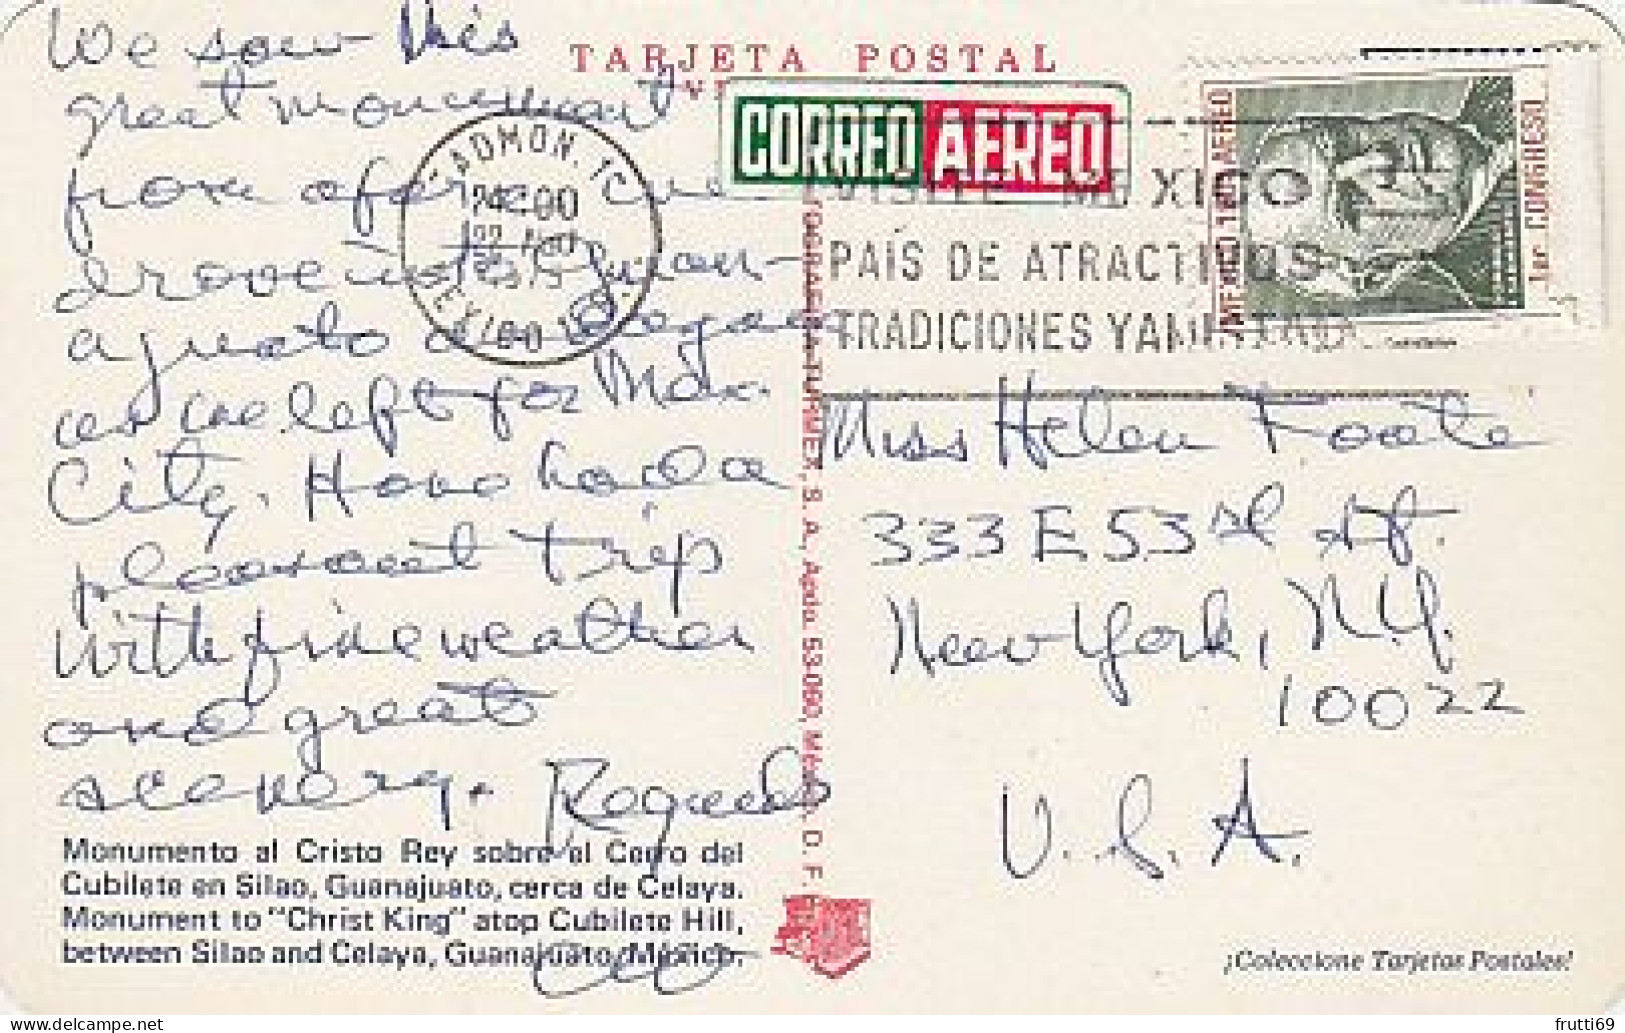 We saw this
great monument
from afar as we
drove into Guan-
ajuato
as we left for Mex.
City. Have had a
pleasant trip
with fine weather
and great
scenery. Regards
TARJETA POSTAL
CORREO AEREO
ADMON. 1
24.00
VISITE MEXICO
PAIS DE ATRACTIVOS
TRADICIONES Y AMISTAD
MEXICO AEREO
1er CONGRESO
Miss Helen Foote
333 E 53rd St.
New York, N.Y.
10022
U.S.A.
TURMEX, S. A., Apdo. 53-090, México, D. F.
Monumento al Cristo Rey sobre el Cerro del
Cubilete en Silao, Guanajuato, cerca de Celaya.
Monument to "Christ King" atop Cubilete Hill,
between Silao and Celaya, Guanajuato, México.
¡Coleccione Tarjetas Postales!
frutti69